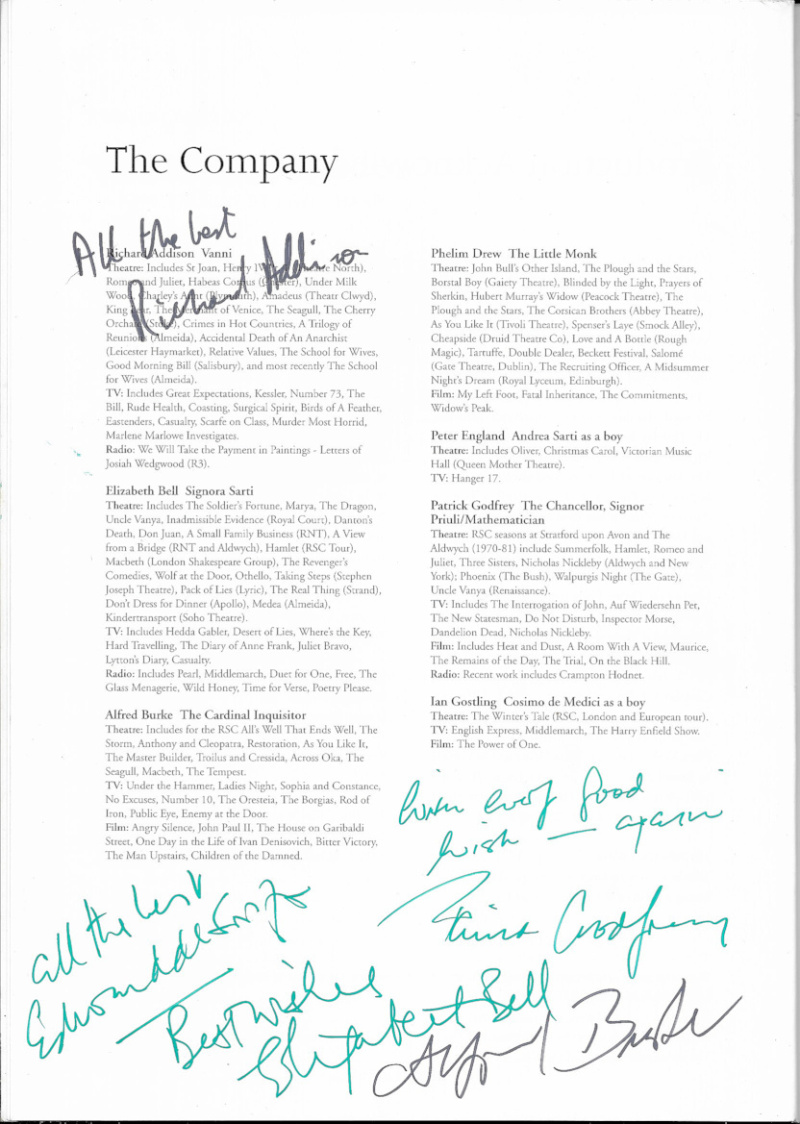 The Company
All the best
Richard Addison
Richard Addison Vanni
Theatre: Includes St Joan, Henry North),
Romeo and Juliet, Habeas Corpus Under Milk
Wood, Charley's Aunt (Plymouth), Amadeus (Theatr Clwyd),
King Lear, The Merchant of Venice, The Seagull, The Cherry
Orchard (Stoke), Crimes in Hot Countries, A Trilogy of
Reunions (Almeida), Accidental Death of An Anarchist
(Leicester Haymarket), Relative Values, The School for Wives,
Good Morning Bill (Salisbury), and most recently The School
for Wives (Almeida).
TV: Includes Great Expectations, Kessler, Number 73, The
Bill, Rude Health, Coasting, Surgical Spirit, Birds of A Feather,
Eastenders, Casualty, Scarfe on Class, Murder Most Horrid,
Marlene Marlowe Investigates.
Radio: We Will Take the Payment in Paintings - Letters of
Josiah Wedgwood (R3).
Elizabeth Bell Signora Sarti
Theatre: Includes The Soldier's Fortune, Marya, The Dragon,
Uncle Vanya, Inadmissible Evidence (Royal Court), Danton's
Death, Don Juan, A Small Family Business (RNT), A View
from a Bridge (RNT and Aldwych), Hamlet (RSC Tour),
Macbeth (London Shakespeare Group), The Revenger's
Comedies, Wolf at the Door, Othello, Taking Steps (Stephen
Joseph Theatre), Pack of Lies (Lyric), The Real Thing (Strand),
Don't Dress for Dinner (Apollo), Medea (Almeida),
Kindertransport (Soho Theatre).
TV: Includes Hedda Gabler, Desert of Lies, Where's the Key,
Hard Travelling, The Diary of Anne Frank, Juliet Bravo,
Lytton's Diary, Casualty.
Radio: Includes Pearl, Middlemarch, Duet for One, Free, The
Glass Menagerie, Wild Honey, Time for Verse, Poetry Please.
Alfred Burke The Cardinal Inquisitor
Theatre: Includes for the RSC All's Well That Ends Well, The
Storm, Anthony and Cleopatra, Restoration, As You Like It,
The Master Builder, Troilus and Cressida, Across Oka, The
Seagull, Macbeth, The Tempest.
TV: Under the Hammer, Ladies Night, Sophia and Constance,
No Excuses, Number 10, The Oresteia, The Borgias, Rod of
Iron, Public Eye, Enemy at the Door.
Film: Angry Silence, John Paul II, The House on Garibaldi
Street, One Day in the Life of Ivan Denisovich, Bitter Victory,
The Man Upstairs, Children of the Damned.
Phelim Drew The Little Monk
Theatre: John Bull's Other Island, The Plough and the Stars,
Borstal Boy (Gaiety Theatre), Blinded by the Light, Prayers of
Sherkin, Hubert Murray's Widow (Peacock Theatre), The
Plough and the Stars, The Corsican Brothers (Abbey Theatre),
As You Like It (Tivoli Theatre), Spenser's Laye (Smock Alley),
Cheapside (Druid Theatre Co), Love and A Bottle (Rough
Magic), Tartuffe, Double Dealer, Beckett Festival, Salomé
(Gate Theatre, Dublin), The Recruiting Officer, A Midsummer
Night's Dream (Royal Lyceum, Edinburgh).
Film: My Left Foot, Fatal Inheritance, The Commitments,
Widow's Peak.
Peter England Andrea Sarti as a boy
Theatre: Includes Oliver, Christmas Carol, Victorian Music
Hall (Queen Mother Theatre).
TV: Hanger 17.
Patrick Godfrey The Chancellor, Signor
Priuli/Mathematician
Theatre: RSC seasons at Stratford upon Avon and The
Aldwych (1970-81) include Summerfolk, Hamlet, Romeo and
Juliet, Three Sisters, Nicholas Nickleby (Aldwych and New
York); Phoenix (The Bush), Walpurgis Night (The Gate),
Uncle Vanya (Renaissance).
TV: Includes The Interrogation of John, Auf Wiedersehn Pet,
The New Statesman, Do Not Disturb, Inspector Morse,
Dandelion Dead, Nicholas Nickleby.
Film: Includes Heat and Dust, A Room With A View, Maurice,
The Remains of the Day, The Trial, On the Black Hill.
Radio: Recent work includes Crampton Hodnet.
Ian Gostling Cosimo de Medici as a boy
Theatre: The Winter's Tale (RSC, London and European tour).
TV: English Express, Middlemarch, The Harry Enfield Show.
Film: The Power of One.
With every good
wish — again
Godfrey
all the best
Best wishes
Elizabeth Bell
Alfred Burke